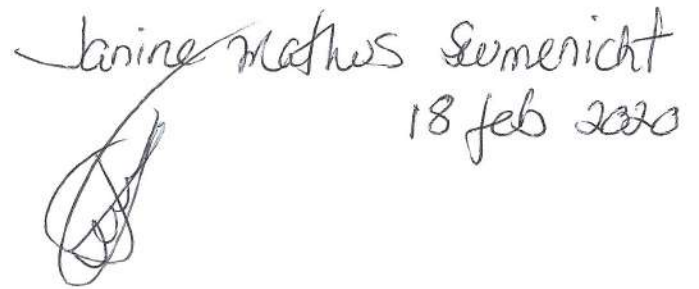 Janine Mathus Seumenicht
18 feb 2020